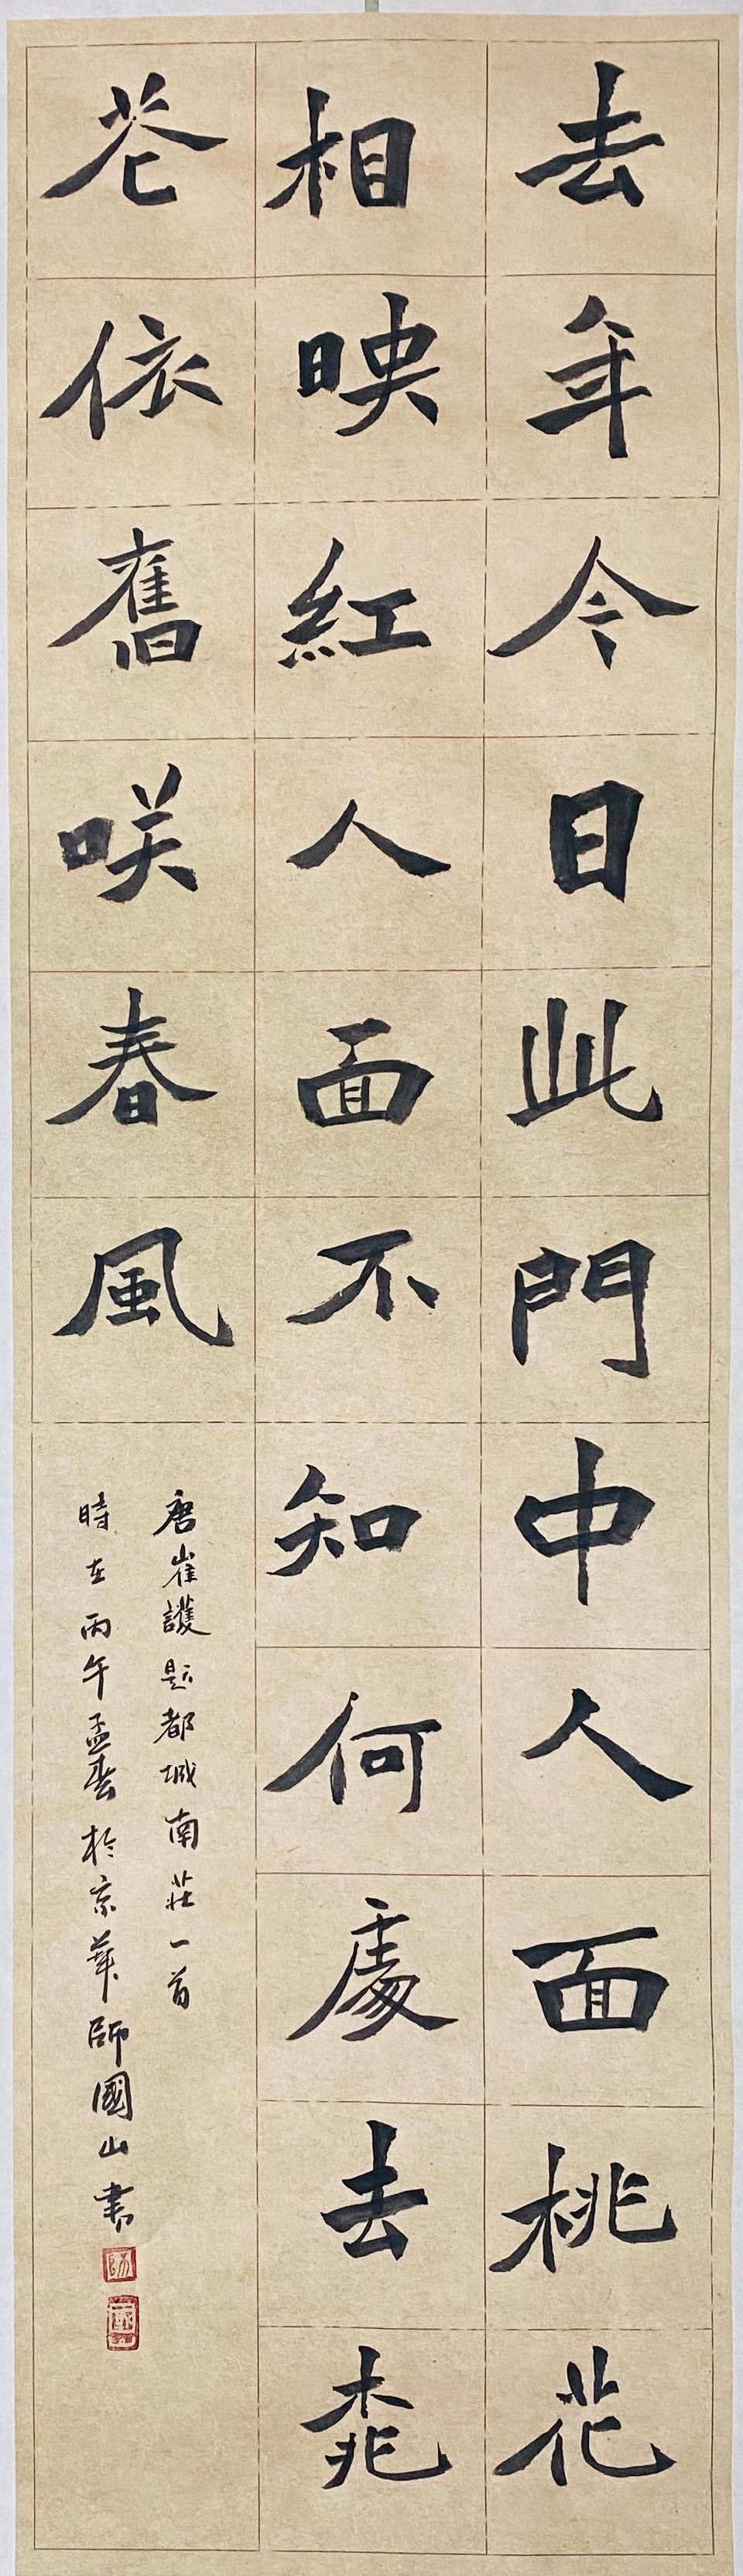 去年今日此門中人面桃花
相映紅人面不知何處去桃
花依舊咲春風
唐崔護題都城南莊一首
時在丙午孟春於京華師國山書
師
國山